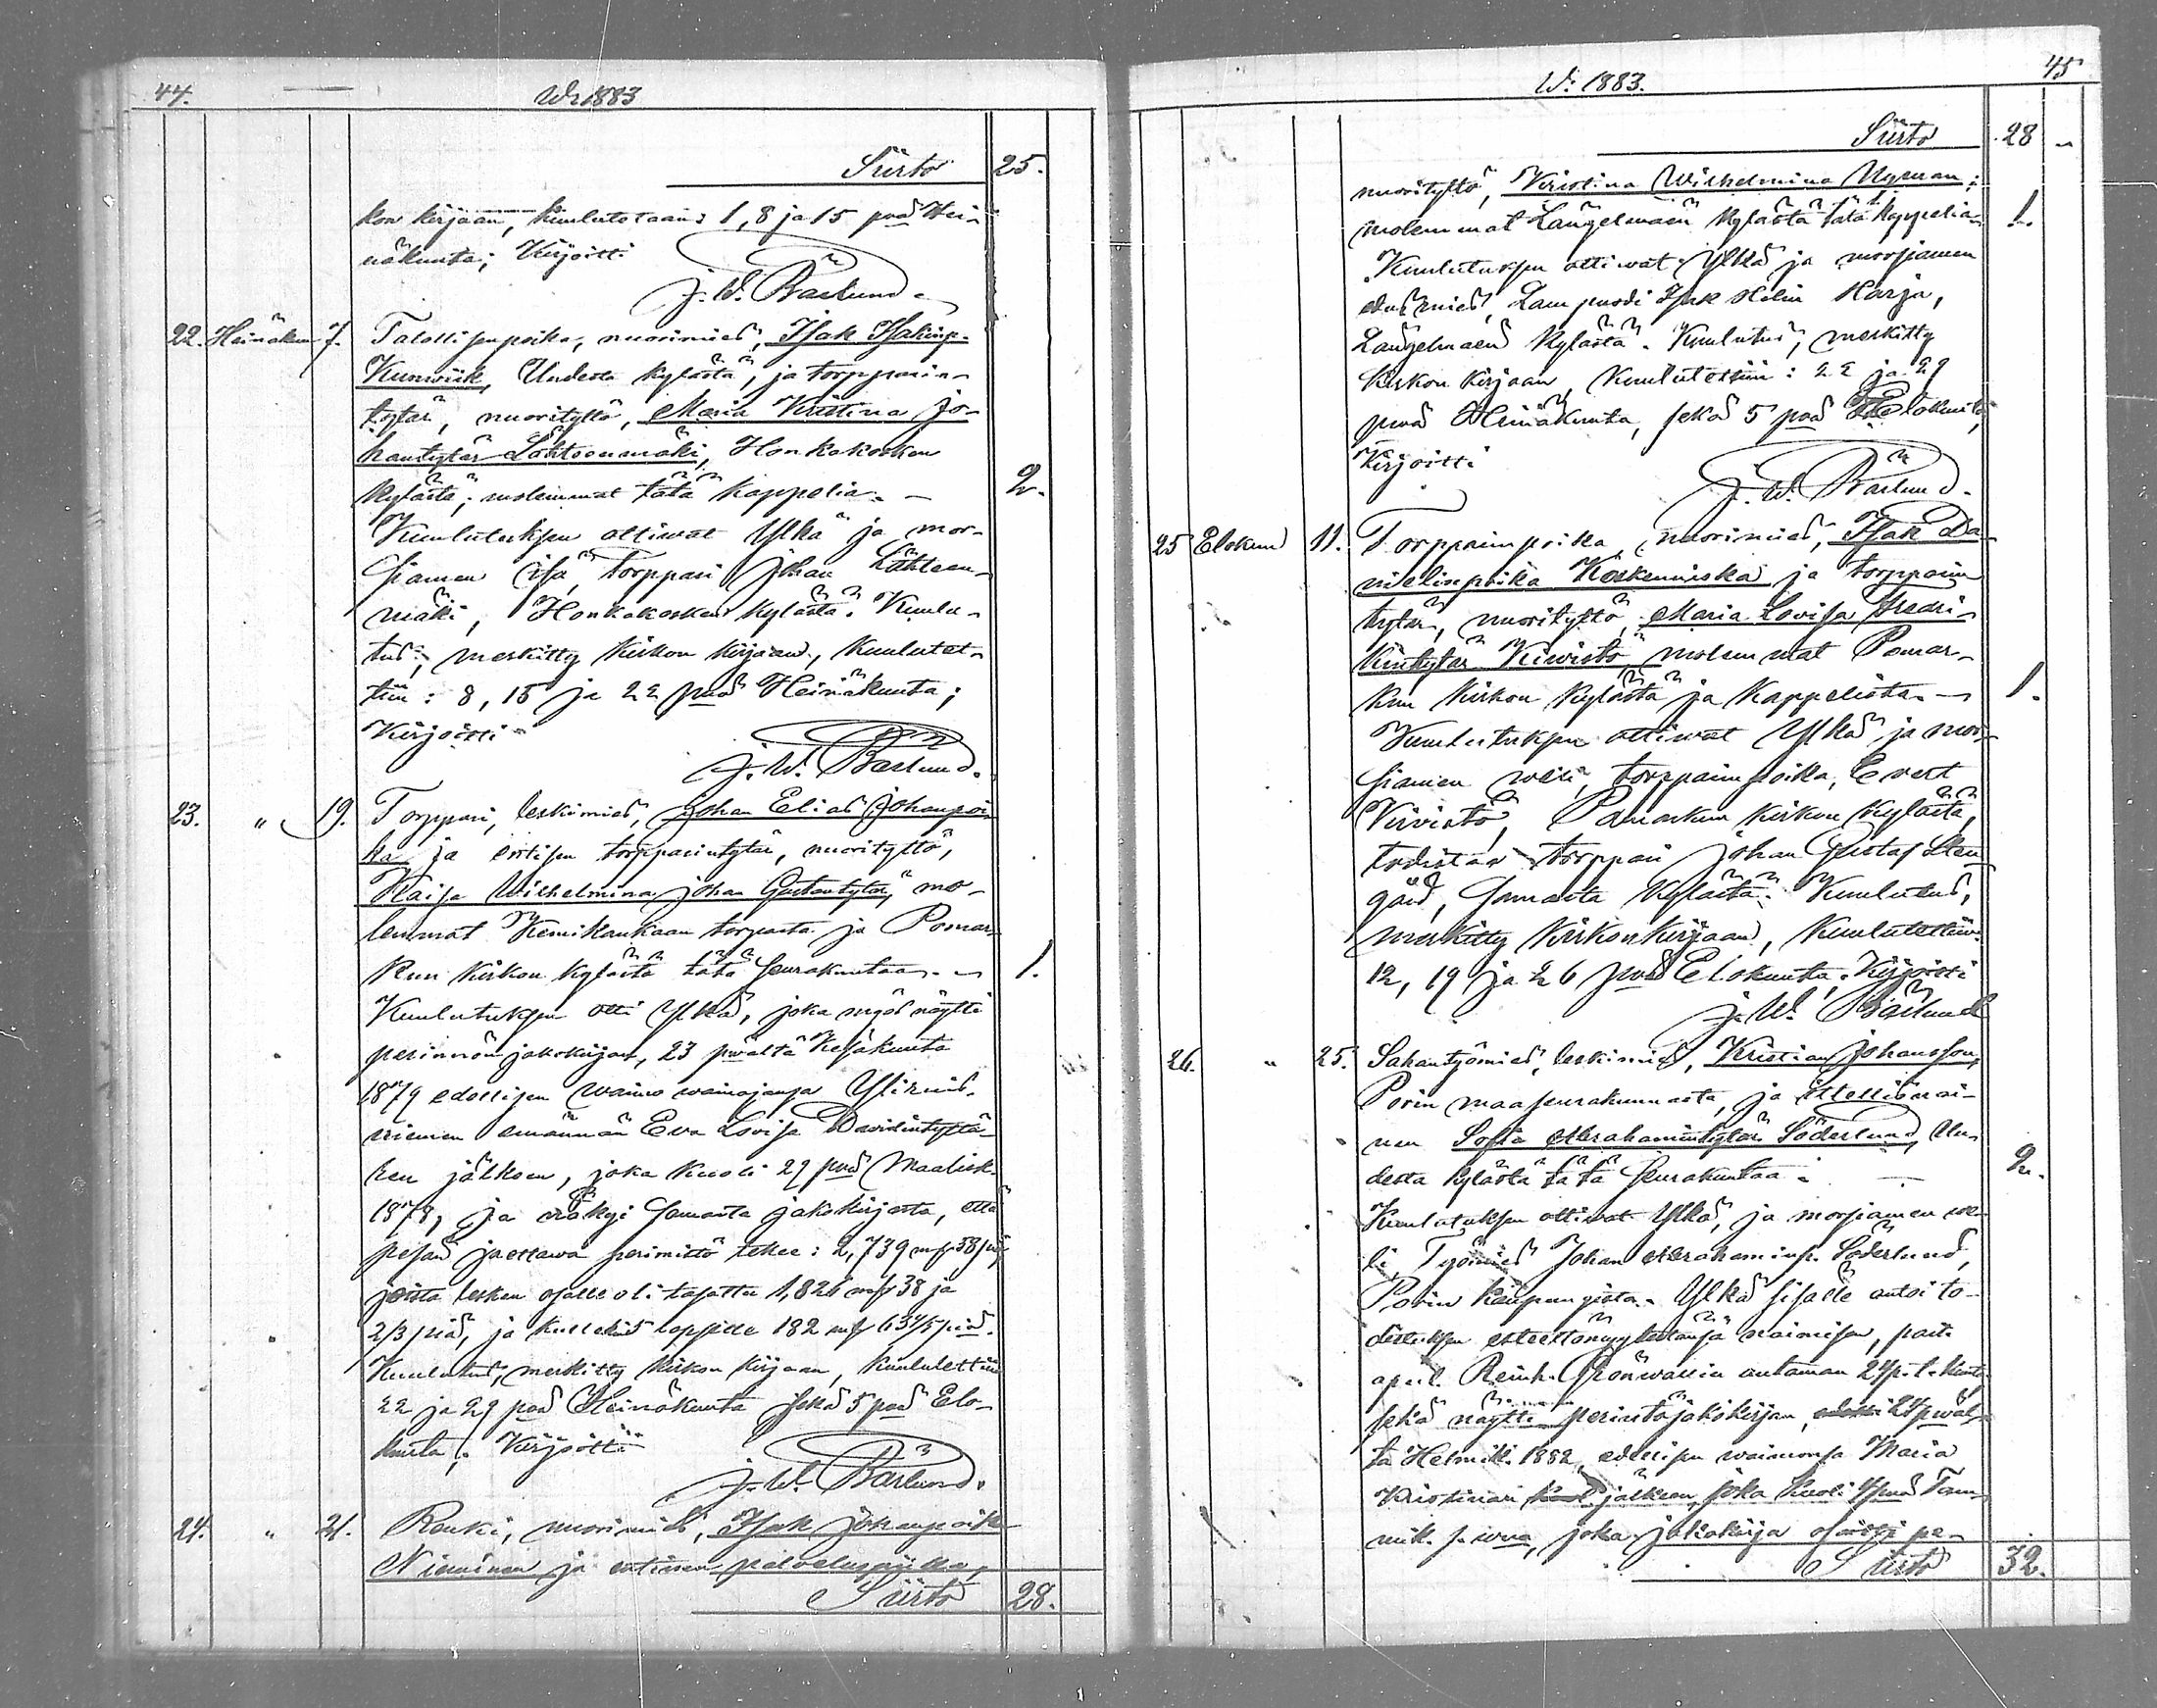 44. W: 1883
Siirto 25.
kon kirjaan, kuulutetaan: 1, 8 ja 15 pnä Hei-
näkuuta; Kirjoitti
J. W. Bärlund.
22. Heinäkuu 7. Talollisenpoika, nuorimies, Isak Isakinp.
Kunwiik, Uudesta kylästä, ja torpparin-
tytär, nuorityttö, Maria Kristina Jo-
hantytär Lähteenmäki, Honkakosken
kylästä; molemmat tätä kappelia. — 2.
Kuulutuksen ottiwat Ylkä ja mor-
siamen isä, Torppari Johan Lähteen-
mäki, Honkakosken kylästä. Kuulu-
tus, merkitty kirkon kirjaan, kuulutet-
tiin: 8, 15 ja 22 pnä Heinäkuuta;
Kirjoitti
J. W. Bärlund.
23. " 19. Torppari, leskimies, Johan Elias Johanpoi-
ka ja entisen torpparintytär, nuorityttö,
Kaisa Wilhelmina Johan Gustantytär, mo-
lemmat Kemikankaan torpasta ja Pomar-
kun kirkon kylästä tätä seurakuntaa. — 1.
Kuulutuksen otti Ylkä, joka myös näytti
perinnön jakokirjan, 23 pwältä Kesäkuuta
1879 edellisen waimo wainajansa Yliruis-
niemen emännän Eva Lovisa Davidintyttä-
ren jälkeen, joka kuoli 29 pnä Maalisk.
1878, ja näkyi samasta jakokirjasta, että
pesän jaettawa perimistö tekee: 2,739 mk 58 p:iä
joista lesken osalle oli tasattu 1,826 mk 38 ja
2/3 p:iä, ja kullekin lapsille 182 mk 63 4/5 p:iä.
Kuulutus, merkitty kirkon kirjaan, kuulutettiin
22 ja 29 pnä Heinäkuuta sekä 5 pnä Elo-
kuuta; Kirjoitti
J. W. Bärlund.
24. " 21. Renki, nuorimies, Isak Johanpoika
Nieminen ja entinen palveluspiika,
Siirto 28.
W: 1883. 45
Siirto 28 "
nuorityttö, Kristina Wilhelmina Nyman;
molemmat Längelmäen kylästä tätä kappelia — 1.
Kuulutuksen ottiwat Ylkä ja morsiamen
edusmies, Lampuodi Isak Helin Harja,
Längelmäen kylästä. Kuulutus, merkitty
kirkon kirjaan, kuulutettiin: 22 ja 29
pnä Heinäkuuta, sekä 5 pnä Elokuuta,
Kirjoitti
J. W. Bärlund.
25 Elokuu 11. Torpparinpoika, nuorimies, Isak Da-
nielinpoika Koskenniska ja torpparin
tytär, nuorityttö, Maria Lovisa Fredri-
kintytär Kiwistö, molemmat Pomar-
kun kirkon kylästä ja kappelista. — 1.
Kuulutuksen ottiwat Ylkä ja mor-
siamen weli, torpparinpoika, Evert
Kiwistö, Pomarkun kirkon kylästä,
todistaa torppari Johan Gustaf Sten
gård, samasta kylästä. Kuulutus,
merkitty kirkonkirjaan, kuulutettiin:
12, 19 ja 26 pnä Elokuuta; Kirjoitti
J. W. Bärlund
26. " 25. Sahantyömies, leskimies, Kristian Johansson,
Porin maaseurakunnasta, ja itsellisnai-
nen Sofia Abrahamintytär Söderlund, Uu-
desta kylästä tätä seurakuntaa. — 2.
Kuulutuksen ottiwat Ylkä, ja morsiamen we-
li, Työmies Johan Abrahaminp. Söderlund,
Porin kaupungista. Ylkä sisälle antoi to-
distuksen esteettömyydestänsä naimisen, past.
apul. Reinh. Grönwallin antaman 24 p. t. kuuta
sekä näytti perintöjakokirjan, 24 pwäl-
tä Helmik. 1882, edellisen waimonsa Maria
Kristinan jälkeen, joka kuoli pnä Tam-
mik. s. wna, joka jakokirja osoitti pe-
Siirto 32.